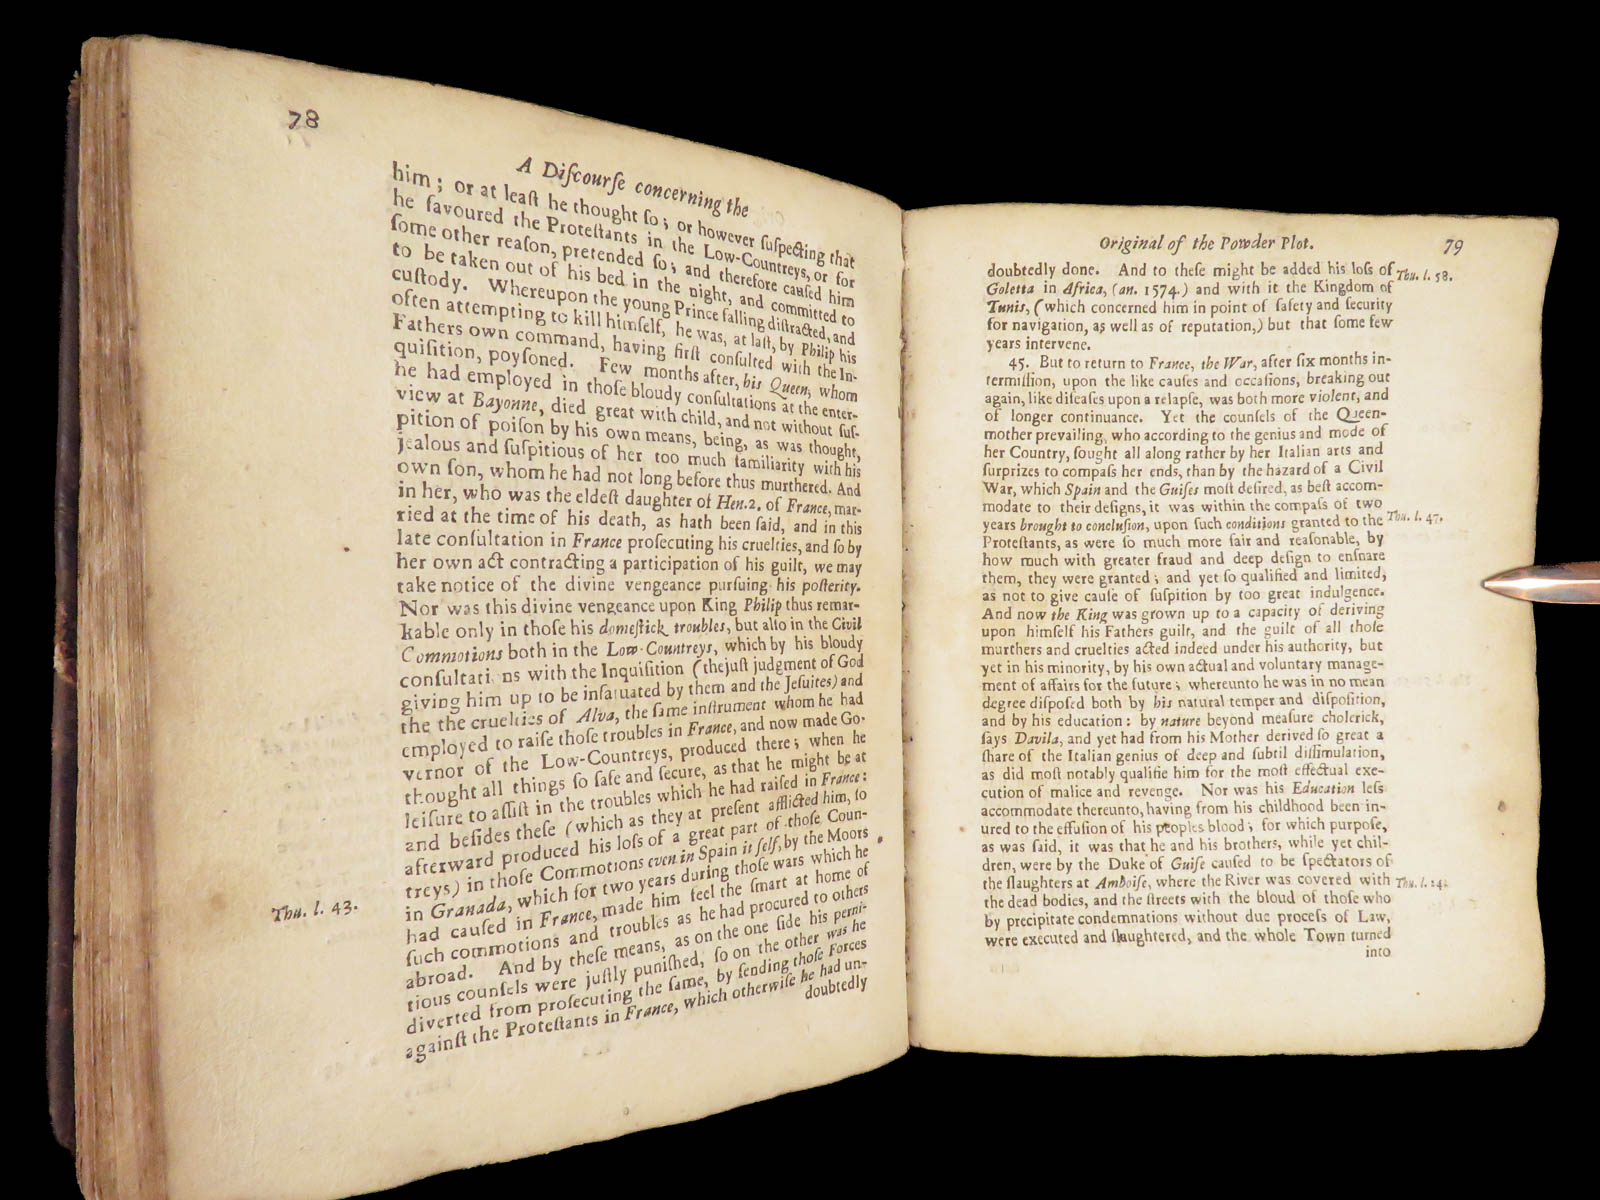 78
A Diſcourſe concerning the
him; or at leaſt he thought ſo; or however ſuſpecting that
he favoured the Proteſtants in the Low-Countreys, or for
ſome other reaſon, pretended ſo; and therefore cauſed him
to be taken out of his bed in the night, and committed to
cuſtody. Whereupon the young Prince falling diſtracted, and
often attempting to kill himſelf, he was, at laſt, by Philip his
Fathers own command, having firſt conſulted with the In-
quiſition, poyſoned. Few months after, his Queen, whom
he had employed in thoſe bloudy conſultations at the enter-
view at Bayonne, died great with child, and not without ſuſ-
pition of poiſon by his own means, being, as was thought,
jealous and ſuſpitious of her too much familiarity with his
own ſon, whom he had not long before thus murthered. And
in her, who was the eldeſt daughter of Hen. 2. of France, mar-
ried at the time of his death, as hath been ſaid, and in this
late conſultation in France proſecuting his cruelties, and ſo by
her own act contracting a participation of his guilt, we may
take notice of the divine vengeance purſuing his poſterity.
Nor was this divine vengeance upon King Philip thus remar-
kable only in thoſe his domeſtick troubles, but alſo in the Civil
Commotions both in the Low-Countreys, which by his bloudy
conſultati ns with the Inquiſition (the juſt judgment of God
giving him up to be infatuated by them and the Jeſuites) and
the the cruelties of Alva, the ſame inſtrument whom he had
employed to raiſe thoſe troubles in France, and now made Go-
vernor of the Low-Countreys, produced there; when he
thought all things ſo ſafe and ſecure, as that he might be at
leiſure to aſſiſt in the troubles which he had raiſed in France:
and beſides theſe (which as they at preſent afflicted him, ſo
afterward produced his loſs of a great part of thoſe Coun-
treys) in thoſe Commotions even in Spain it ſelf, by the Moors
in Granada, which for two years during thoſe wars which he
Thu. l. 43.
had cauſed in France, made him feel the ſmart at home of
ſuch commotions and troubles as he had procured to others
abroad. And by theſe means, as on the one ſide his perni-
tious counſels were juſtly puniſhed, ſo on the other was he
diverted from proſecuting the ſame, by ſending thoſe Forces
againſt the Proteſtants in France, which otherwiſe he had un-
doubtedly
Original of the Powder Plot. 79
doubtedly done. And to theſe might be added his loſs of
Thu. l. 58.
Goletta in Africa, (an. 1574.) and with it the Kingdom of
Tunis, (which concerned him in point of ſafety and ſecurity
for navigation, as well as of reputation,) but that ſome few
years intervene.
45. But to return to France, the War, after ſix months in-
termiſſion, upon the like cauſes and occaſions, breaking out
again, like diſeaſes upon a relapſe, was both more violent, and
of longer continuance. Yet the counſels of the Queen-
mother prevailing, who according to the genius and mode of
her Country, ſought all along rather by her Italian arts and
ſurprizes to compaſs her ends, than by the hazard of a Civil
War, which Spain and the Guiſes moſt deſired, as beſt accom-
modate to their deſigns, it was within the compaſs of two
years brought to concluſion, upon ſuch conditions granted to the
Thu. l. 47.
Proteſtants, as were ſo much more fair and reaſonable, by
how much with greater fraud and deep deſign to enſnare
them, they were granted; and yet ſo qualified and limited,
as not to give cauſe of ſuſpition by too great indulgence.
And now the King was grown up to a capacity of deriving
upon himſelf his Fathers guilt, and the guilt of all thoſe
murthers and cruelties acted indeed under his authority, but
yet in his minority, by his own actual and voluntary manage-
ment of affairs for the future; whereunto he was in no mean
degree diſpoſed both by his natural temper and diſpoſition,
and by his education: by nature beyond meaſure cholerick,
ſays Davila, and yet had from his Mother derived ſo great a
ſhare of the Italian genius of deep and ſubtil diſſimulation,
as did moſt notably qualifie him for the moſt effectual exe-
cution of malice and revenge. Nor was his Education leſs
accommodate thereunto, having from his childhood been in-
ured to the effuſion of his peoples blood; for which purpoſe,
as was ſaid, it was that he and his brothers, while yet chil-
dren, were by the Duke of Guiſe cauſed to be ſpectators of
the ſlaughters at Amboiſe, where the River was covered with
Thu. l. 24.
the dead bodies, and the ſtreets with the bloud of thoſe who
by precipitate condemnations without due proceſs of Law,
were executed and ſlaughtered, and the whole Town turned
into